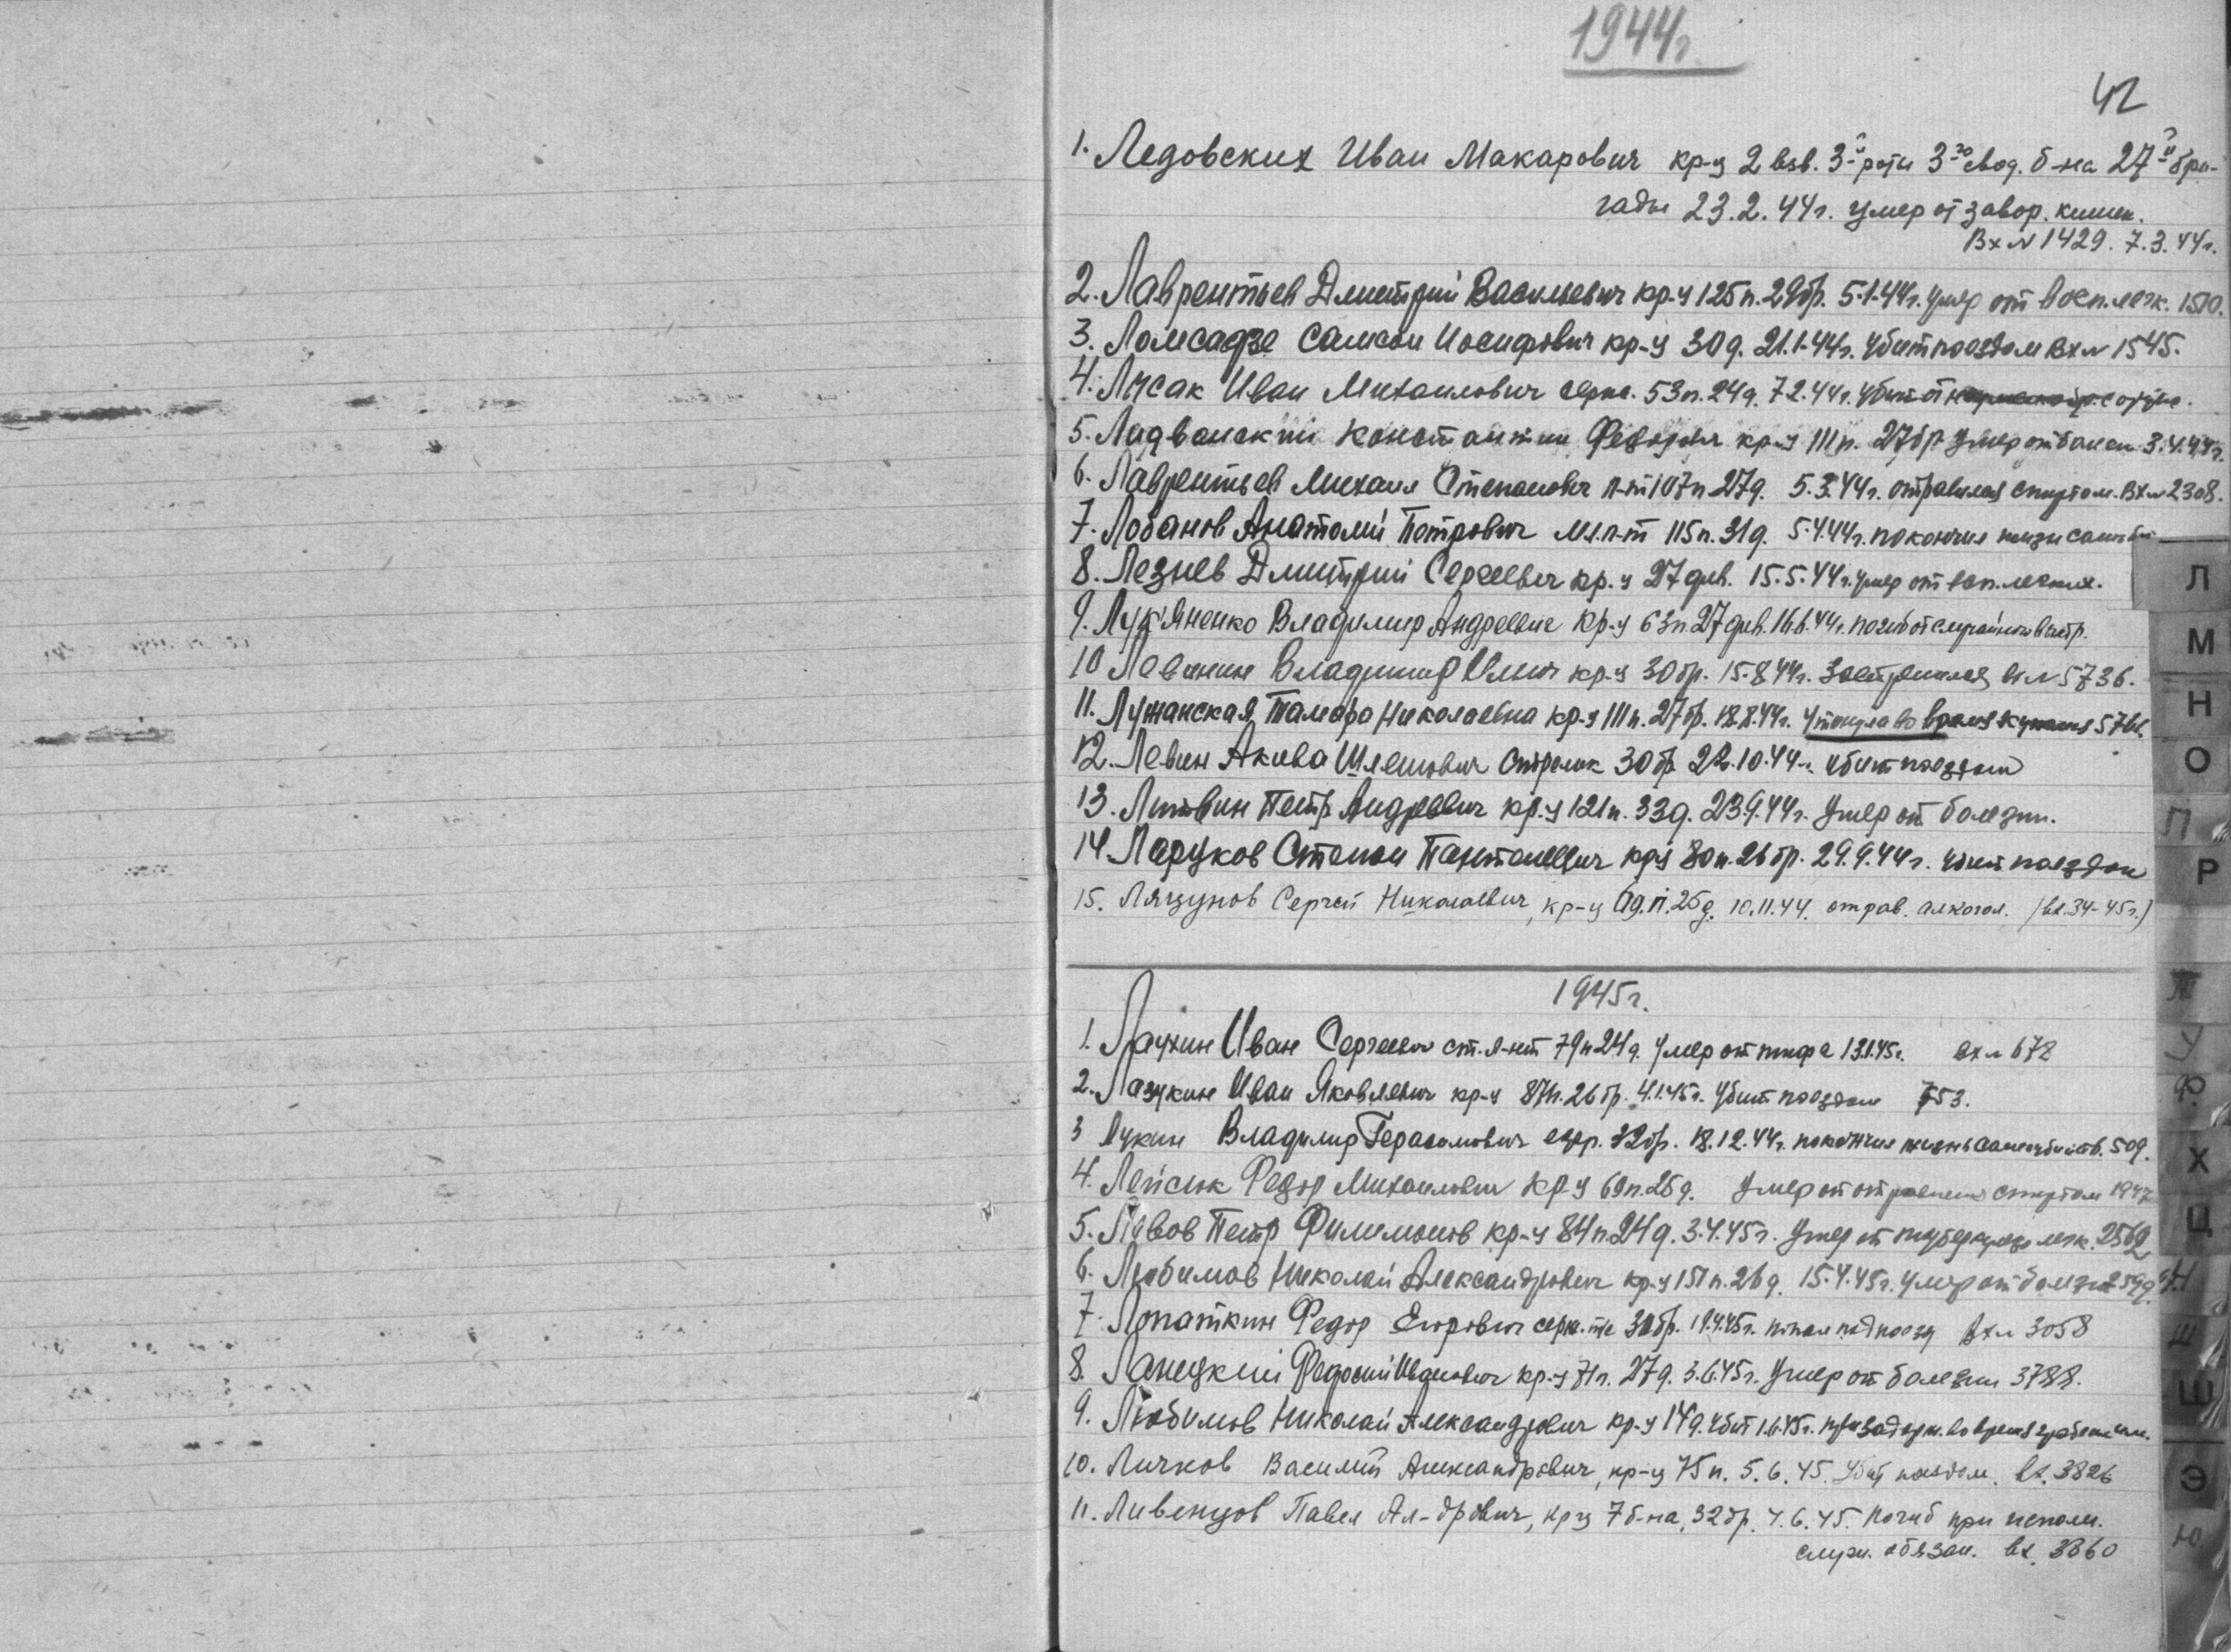 1944г.
42
1. Ледовских Иван Макарович кр-ц 2 взв. 3-й роты 3-го свод. б-на 27-й бри-
гады 23.2.44г. умер от завор. кишек.
Вх № 1429. 7.3.44г.
2. Лаврентьев Дмитрий Васильевич кр-ц 125п. 29бр. 5.1.44г. умер от восп. легк. 1510.
3. Ломсадзе Самсон Иосифович кр-ц 30д. 21.1.44г. Убит поездом вх № 1545.
4. Лысак Иван Михайлович серж. 53п. 24д. 7.2.44г. убит
5. Константин кр-ц 111п. 27бр умер от болезн 3.4.44г.
6. Лаврентьев Михаил Степанович л-т 107п 27д. 5.3.44г. отравился спиртом. Вх№ 2308.
7. Лобанов Анатолий Петрович мл. л-т 115п. 31д. 5.4.44г. покончил жизн
8. Лезнев Дмитрий Сергеевич кр-ц 27див. 15.5.44г. умер от восп. легких.
9. Лук'яненко Владимир Андреевич кр-ц 63п 27див. 16.6.44г. погиб от случайного выстр.
10 Владимир Ильич кр-ц 30бр. 15.8.44г. Застрелился вх№ 5736.
11. Лужанская Тамара Николаевна кр-ц 111п. 27бр. 18.8.44г. Утонула во время купания
12. Левин Акива Шлемович стрелок 30бр 22.10.44г. убит поездом
13. Литвин Петр Андреевич кр-ц 121п. 33д. 23.9.44г. Умер от болезни.
14. Ларуков Степан Пантелеевич кр-ц 80п. 26бр. 29.9.44г. убит поездом
15. Лягунов Сергей Николаевич, кр-ц 69.п. 25д. 10.11.44. отрав. алкогол. (вх. 34-45г.)
1945г.
1. Лаухин Иван Сергеевич ст. л-нт 79п 24д. Умер от тифа 13.1.45г. вх № 678
2. Лазукин Иван Яковлевич кр-ц 87п. 26бр. 4.1.45г. Убит поездом 753.
3 Лукин Владимир Герасимович ефр. 32бр. 18.12.44г. покончил жизнь самоубийств. 509.
4. Лейсюк Федор Михайлович кр-ц 69п. 25д. Умер от отравления спиртом 1947
5. Петр Филимонов кр-ц 84п 24д. 3.4.45г. Умер от туберкулеза легк. 2569
6. Любимов Николай Александрович кр-ц 151п. 26д. 15.4.45г. умер от болезни
7. Лопаткин Федор Егорович серж. 30бр. 19.4.45г. попал под поезд вх№ 3058
8. Ланецкий Федосий Иванович кр-ц 71п. 27д. 3.6.45г. Умер от болезни 3788.
9. Любимов Николай Александрович кр-ц 14д. убит 1.6.45г. при задерж. во время
10. Личков Василий Александрович, кр-ц 75п. 5.6.45. Убит поездом. вх. 3826
11. Ливенцов Павел Ал-дрович, кр-ц 7б-на, 32бр. 4.6.45. Погиб при исполн.
служ. обязан. вх. 3860
Л
М
Н
О
П
Р
Т
У
Ф
Х
Ц
Ч
Ш
Э
Ю